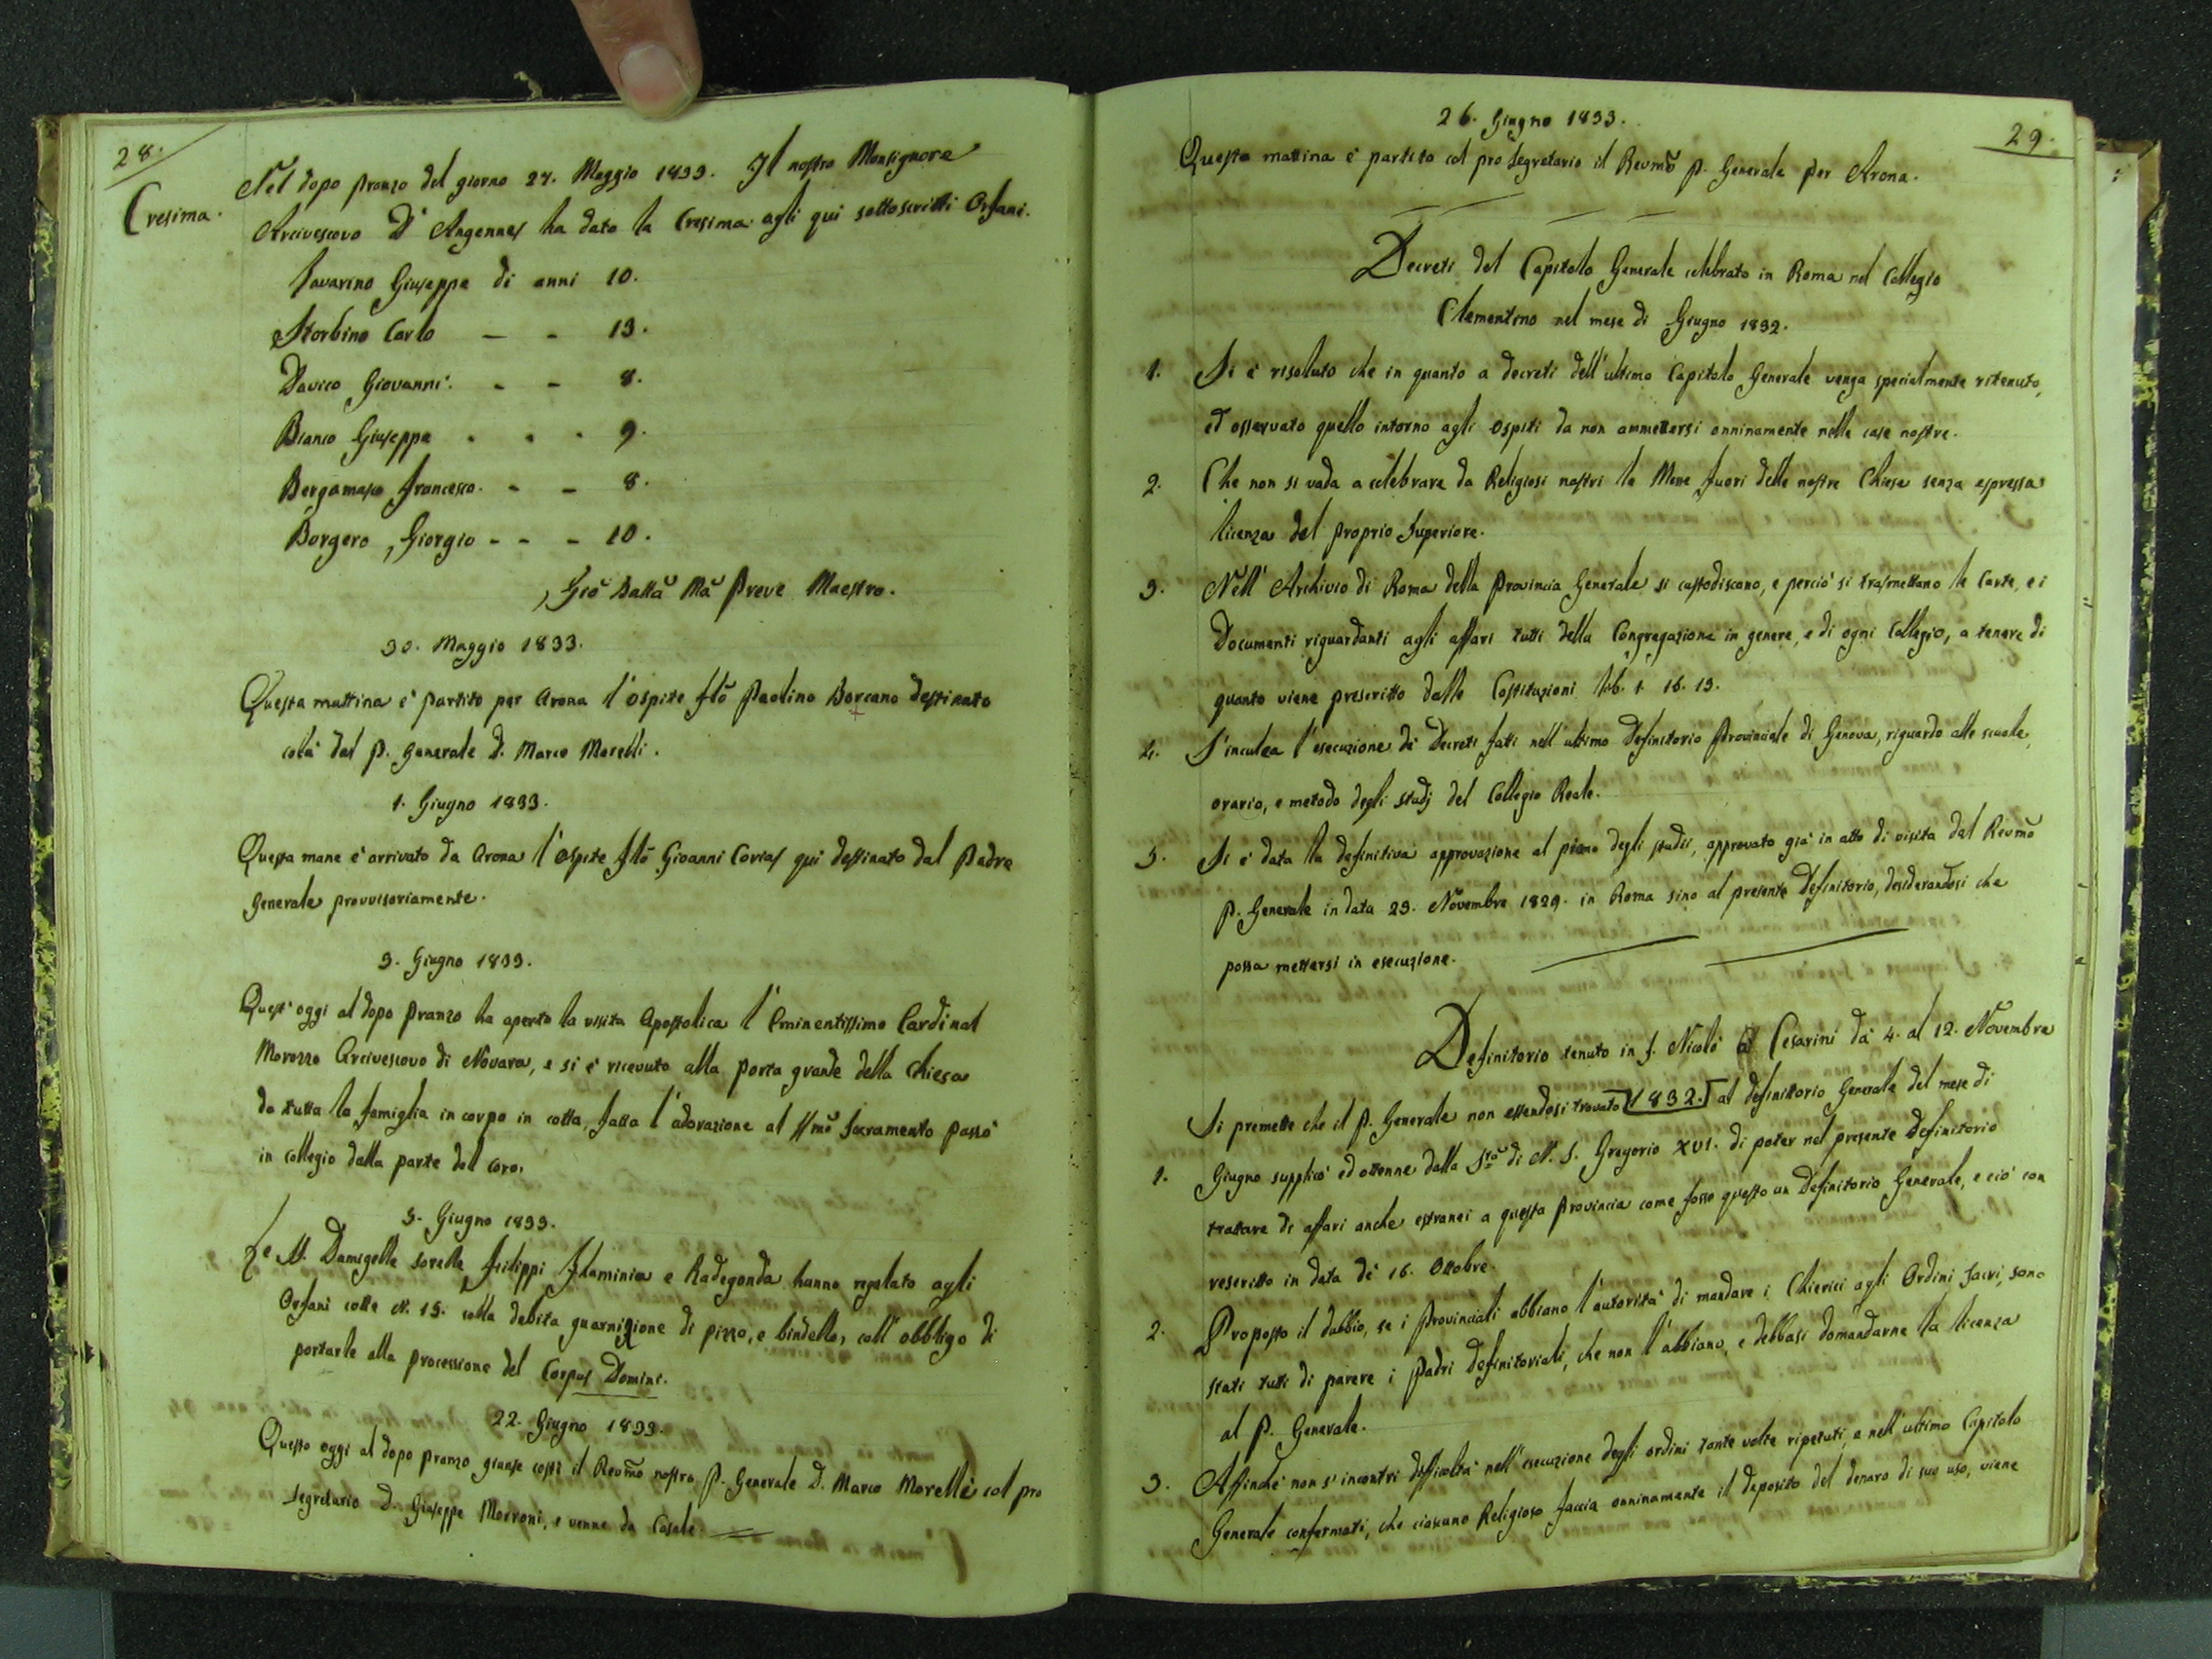 28.
Cresima.
Nel dopo pranzo del giorno 27. Maggio 1833. Il nostro Monsignore
Arcivescovo D'Angennes ha dato la Cresima agli qui sottoscritti Orfani.
Savarino Giuseppe di anni 10.
Storbino Carlo — - 13.
Davico Giovanni. - - 8.
Bianco Giuseppe . . . 9.
Bergamasco Francesco. - - 8.
Borgero, Giorgio - - - 10.
Gio Batta Ma Preve Maestro.
30. Maggio 1833.
Questa mattina è partito per Arona l'ospite flo Paolino Borcano destinato
colà dal P. Generale D. Marco Morelli.
1. Giugno 1833.
Questa mane è arrivato da Arona l'ospite flo Gioanni Covias qui destinato dal Padre
Generale provvisoriamente.
3. Giugno 1833.
Quest'oggi al dopo pranzo ha aperto la visita Apostolica l'Eminentissimo Cardinal
Morozzo Arcivescovo di Novara, e si è ricevuto alla porta grande della Chiesa
da tutta la famiglia in corpo in cotta, fatta l'adorazione al SSmo Sacramento passò
in collegio dalla parte del coro.
5. Giugno 1833.
Le M. Damigelle sorelle Filippi Flaminia e Radegonda hanno regalato agli
Orfani cotte N. 15. colla debita guarnizione di pizzo, e bindello, coll'obbligo di
portarle alla processione del Corpus Domini.
22. Giugno 1833.
Questo oggi al dopo pranzo giunse costì il Revmo nostro P. Generale D. Marco Morelli col pro
segretario D. Giuseppe Morroni, e venne da Casale.
29.
26. Giugno 1833.
Questa mattina è partito col pro Segretario il Revmo P. Generale per Arona.
Decreti del Capitolo Generale celebrato in Roma nel Collegio
Clementino nel mese di Giugno 1832.
1. Si è risoluto che in quanto a decreti dell'ultimo Capitolo Generale venga specialmente ritenuto,
ed osservato quello intorno agli ospiti da non ammettersi onninamente nelle case nostre.
2. Che non si vada a celebrare da Religiosi nostri le Messe fuori delle nostre Chiese senza espressa
licenza del proprio Superiore.
3. Nell'Archivio di Roma della Provincia Generale si custodiscano, e perciò si trasmettano le Carte, e i
Documenti riguardanti agli affari tutti della Congregazione in genere, e di ogni Collegio, a tenore di
quanto viene prescritto dalle Costituzioni lib. 1. 16. 13.
4. S'inculca l'esecuzione de' Decreti fatti nell'ultimo Definitorio Provinciale di Genova, riguardo alle scuole,
orario, e metodo degli studj del Collegio Reale.
5. Si è data la definitiva approvazione al piano degli studii, approvato già in atto di visita dal Revmo
P. Generale in data 23. Novembre 1829. in Roma sino al presente Definitorio, desiderandosi che
possa mettersi in esecuzione.
Definitorio tenuto in S. Nicolò a' Cesarini da' 4. al 12. Novembre
1832.
Si premette che il P. Generale non essendosi trovato al definitorio Generale del mese di
1. Giugno supplicò ed ottenne dalla Stà di N. S. Gregorio XVI. di poter nel presente Definitorio
trattare di affari anche estranei a questa Provincia come fosse questo un Definitorio Generale, e ciò con
rescritto in data de' 16. Ottobre.
2. Proposto il dubbio, se i Provinciali abbiano l'autorità di mandare i Chierici agli Ordini Sacri, sono
stati tutti di parere i Padri Definitoriali, che non l'abbiano, e debbasi domandarne la licenza
al P. Generale.
3. Affinchè non s'incontri difficoltà nell'esecuzione degli ordini tante volte ripetuti, e nell'ultimo Capitolo
Generale confermati, che ciascuno Religioso faccia onninamente il deposito del denaro di suo uso, viene